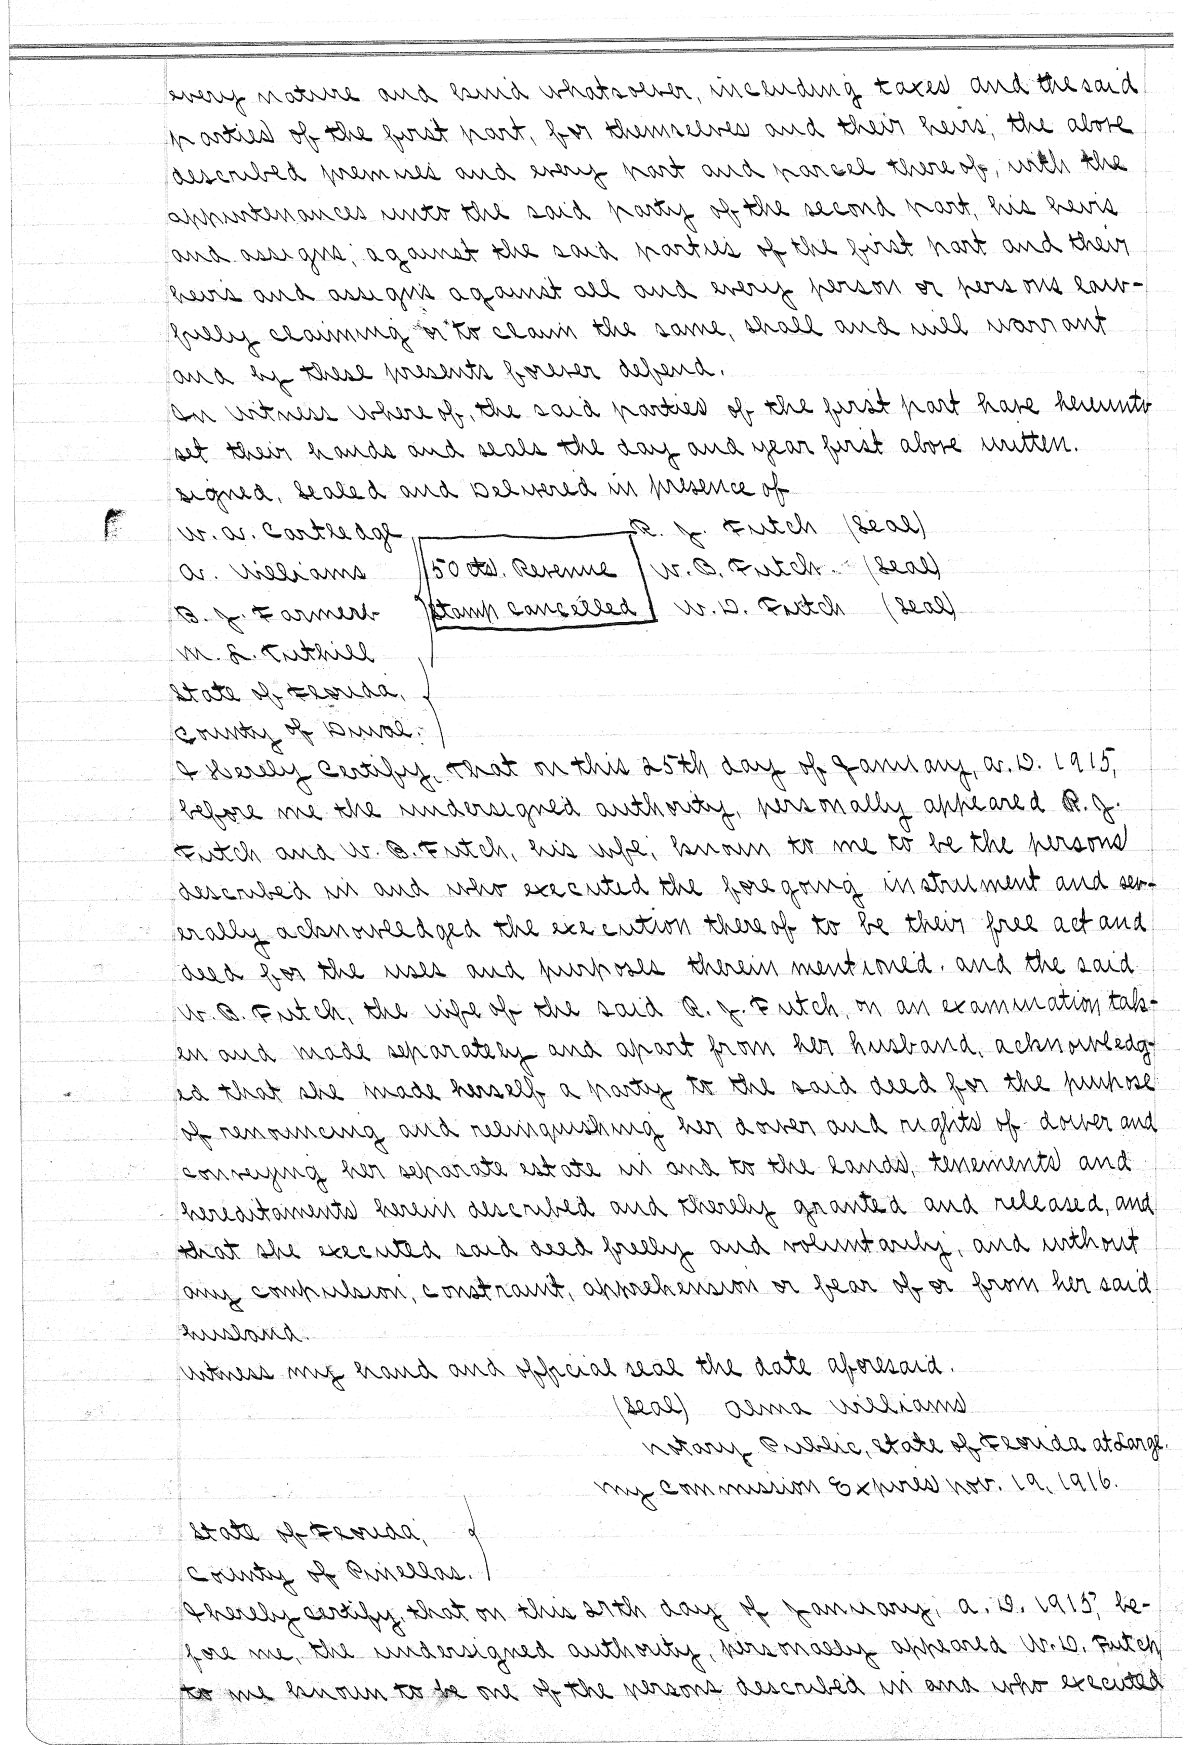 every nature and kind whatsoever, including taxes and the said
parties of the first part, for themselves and their heirs, the above
described premises and every part and parcel thereof, with the
appurtenances unto the said party of the second part, his heirs
and assigns, against the said parties of the first part and their
heirs and assigns against all and every person or persons law-
fully claiming or to claim the same, shall and will warrant
and by these presents forever defend.
In Witness Whereof, the said parties of the first part have hereunto
set their hands and seals the day and year first above written.
Signed, Sealed and Delivered in presence of
W. A. Cartledge R. J. Futch (Seal)
A. Williams 50 cts. Revenue W. B. Futch. (Seal)
B. J. Farmer Stamp Cancelled W. D. Futch (Seal)
M. L. Tuthill
State of Florida,
County of Duval.
I Hereby Certify, that on this 25th day of January, A.D. 1915,
before me the undersigned authority, personally appeared R. J.
Futch and W. B. Futch, his wife, known to me to be the persons
described in and who executed the foregoing instrument and sev-
erally acknowledged the execution thereof to be their free act and
deed for the uses and purposes therein mentioned. and the said
W. B. Futch, the wife of the said R. J. Futch, on an examination tak-
en and made separately and apart from her husband, acknowledg-
ed that she made herself a party to the said deed for the purpose
of renouncing and relinquishing her dower and rights of dower and
conveying her separate estate in and to the lands, tenements and
hereditaments herein described and thereby granted and released, and
that she executed said deed freely and voluntarily, and without
any compulsion, constraint, apprehension or fear of or from her said
husband.
Witness my hand and official seal the date aforesaid.
(Seal) Alma Williams
Notary Public, State of Florida at Large.
My Commission Expires Nov. 19, 1916.
State of Florida,
County of Pinellas.
I hereby certify, that on this 27th day of January, A.D. 1915, be-
fore me, the undersigned authority, personally appeared W. D. Futch
to me known to be one of the persons described in and who executed